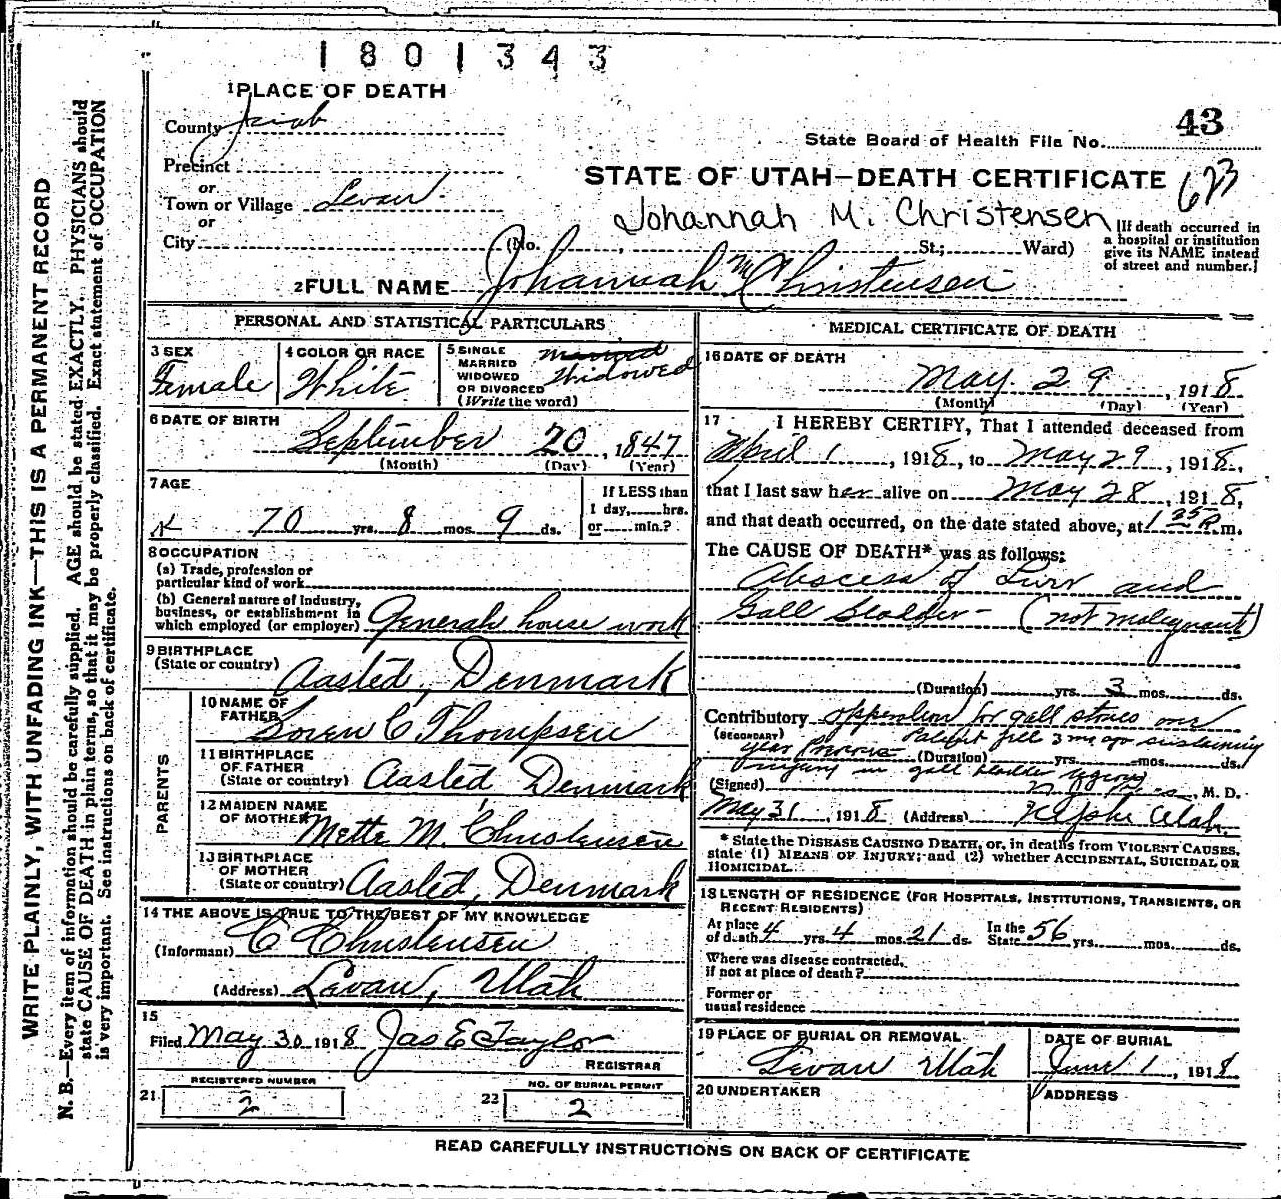 1801343
1 PLACE OF DEATH
County Juab
State Board of Health File No. 43
Precinct
or
Town or Village Levan
or
City
STATE OF UTAH—DEATH CERTIFICATE 623
Johannah M. Christensen
(No. St.; Ward)
[If death occurred in
a hospital or institution
give its NAME instead
of street and number.]
2 FULL NAME Johannah M Christensen
PERSONAL AND STATISTICAL PARTICULARS
3 SEX
Female
4 COLOR OR RACE
White
5 SINGLE
MARRIED
WIDOWED
OR DIVORCED
(Write the word)
married
Widowed
6 DATE OF BIRTH
September 20, 1847
(Month) (Day) (Year)
7 AGE
70 yrs. 8 mos. 9 ds.
If LESS than
1 day, hrs.
or min.?
8 OCCUPATION
(a) Trade, profession or
particular kind of work
(b) General nature of industry,
business, or establishment in
which employed (or employer) General house work
9 BIRTHPLACE
(State or country) Aasted, Denmark
PARENTS
10 NAME OF
FATHER Soren C Thompsen
11 BIRTHPLACE
OF FATHER
(State or country) Aasted, Denmark
12 MAIDEN NAME
OF MOTHER Mette M. Christensen
13 BIRTHPLACE
OF MOTHER
(State or country) Aasted, Denmark
14 THE ABOVE IS TRUE TO THE BEST OF MY KNOWLEDGE
(Informant) C Christensen
(Address) Levan, Utah
15
Filed May 30 1918 Jas E Taylor
REGISTRAR
REGISTERED NUMBER
21 2
NO. OF BURIAL PERMIT
22 2
MEDICAL CERTIFICATE OF DEATH
16 DATE OF DEATH
May 29, 1918
(Month) (Day) (Year)
17 I HEREBY CERTIFY, That I attended deceased from
April 1, 1918, to May 29, 1918,
that I last saw her alive on May 28, 1918,
and that death occurred, on the date stated above, at 1 25 P.m.
The CAUSE OF DEATH* was as follows:
Abscess of Liver and
Gall Bladder - (not malignant)
(Duration) yrs. 3 mos. ds.
Contributory opperation for gall stones one
(SECONDARY) Patient fell 3 mo ago sustaining
year Previous (Duration) yrs. mos. ds.
injury in gall bladder region
(Signed) M. D.
May 31, 1918 (Address) Nephi Utah.
* State the DISEASE CAUSING DEATH, or, in deaths from VIOLENT CAUSES,
state (1) MEANS OF INJURY; and (2) whether ACCIDENTAL, SUICIDAL OR
HOMICIDAL.
18 LENGTH OF RESIDENCE (FOR HOSPITALS, INSTITUTIONS, TRANSIENTS, OR
RECENT RESIDENTS)
At place
of death 4 yrs. 4 mos. 21 ds.
In the
State 56 yrs. mos. ds.
Where was disease contracted,
if not at place of death?
Former or
usual residence
19 PLACE OF BURIAL OR REMOVAL
Levan Utah
DATE OF BURIAL
June 1, 1918
20 UNDERTAKER
ADDRESS
READ CAREFULLY INSTRUCTIONS ON BACK OF CERTIFICATE
WRITE PLAINLY, WITH UNFADING INK—THIS IS A PERMANENT RECORD
N. B.—Every item of information should be carefully supplied. AGE should be stated EXACTLY. PHYSICIANS should
state CAUSE OF DEATH in plain terms, so that it may be properly classified. Exact statement of OCCUPATION
is very important. See instructions on back of certificate.